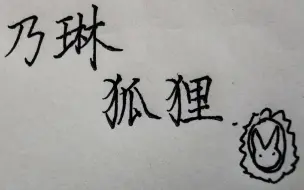 乃琳
狐狸